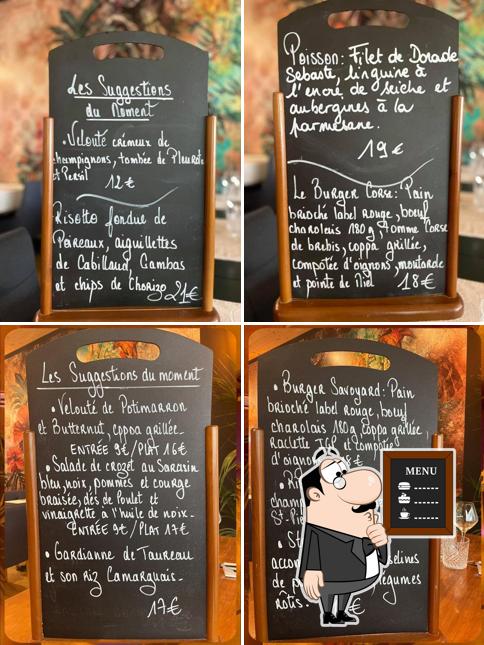 Les Suggestions
du Moment
• Velouté crémeux de
champignons, tombée de Pleurote
et Persil
12€
Risotto fondue de
Poireaux, aiguillettes
de Cabillaud, Gambas
et chips de Chorizo 21€
Poisson: Filet de Dorade
Sebaste, linguine à
l'encre de seiche et
aubergines à la
parmesane.
19€
Le Burger Corse: Pain
brioché label rouge, boeuf
charolais 180g, tomme Corse
de brebis, coppa grillée,
compotée d'oignons, moutarde
et pointe de miel 18€
Les Suggestions du moment
• Velouté de Potimarron
et Butternut, coppa grillée.
ENTRÉE 9€/PLAT 16€
• Salade de crozet au Sarasin
bleu, noix, pommes et courge
braisée, dés de Poulet et
vinaigrette à l'huile de noix.
ENTRÉE 9€/PLAT 17€
• Gardianne de Taureau
et son Riz Camarguais.
17€
• Burger Savoyard: Pain
brioché label rouge, boeuf
charolais 180g, coppa grillée,
Raclette IGP et compotée
d'oignons €
champ
St-Pie
• St
accom
de p légumes
rôtis. €
MENU